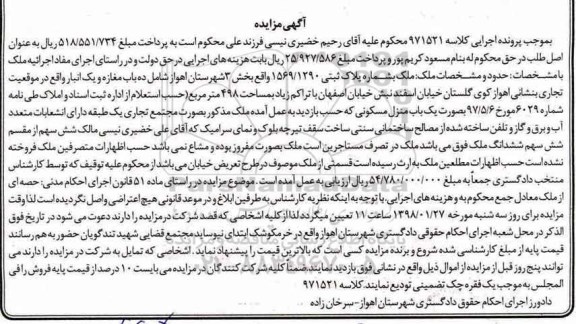 آگهی مزایده
بموجب پرونده اجرایی کلاسه ۹۷۱۵۲۱ محکوم علیه آقای رحیم خضیری نیسی فرزند علی محکوم است به پرداخت مبلغ ۵۱۸/۵۵۱/۷۳۴ ریال به عنوان
اصل طلب در حق محکوم له بنام مسعود کریم پور و پرداخت مبلغ ۲۵/۹۲۷/۵۸۶ ریال بابت هزینه های اجرایی در حق دولت و در راستای اجرای مفاد اجرائیه ملک
با مشخصات: حدود و مشخصات ملک: ملک به شماره پلاک ثبتی ۱۵۶۹/۱۲۹۰ واقع بخش ۳ شهرستان اهواز شامل ده باب مغازه و یک انبار واقع در موقعیت
تجاری بنشانی اهواز کوی گلستان خیابان اسفند نبش خیابان اصفهان با تراکم زیاد بمساحت ۴۹۸ متر مربع (حسب استعلام از اداره ثبت اسناد و املاک طی نامه
شماره ۶۰۲۹ مورخ ۹۷/۵/۶ بصورت یک باب منزل مسکونی که حسب بازدید به عمل آمده ملک مذکور بصورت مجتمع تجاری یک طبقه دارای انشعابات متعدد
آب و برق و گاز و تلفن ساخته شده از مصالح ساختمانی سنتی ساخت سقف تیرچه بلوک و نمای سرامیک که آقای علی خضیری نیسی مالک شش سهم از مقسم
شش سهم ششدانگ ملک فوق می باشد ملک در تصرف مستاجرین است ملک بصورت مفروز بوده و مشاع نمی باشد حسب اظهارات متصرفین ملک فروخته
نشده است حسب اظهارات مطلعین ملک به ارث رسیده است قسمتی از ملک موصوف در طرح تعریض خیابان می باشد از محکوم علیه توقیف که توسط کارشناس
منتخب دادگستری جمعا به مبلغ ۵۴/۷۸۰/۰۰۰/۰۰۰ ریال ارزیابی به عمل آمده است . موضوع مزایده در راستای ماده ۵۱ قانون اجرای احکام مدنی: حصه ای
از ملک معادل جمع محکوم به و هزینه های اجرایی. با توجه به اینکه نظریه کارشناس به طرفین ابلاغ و در موعد قانونی هیچ اعتراضی واصل نگردیده است لذا وقت
مزایده برای روز سه شنبه مورخه ۱۳۹۸/۰۱/۲۷ ساعت ۱۱ تعیین میگردد لذا از کلیه اشخاصی که قصد شرکت در مزایده را دارند دعوت می شود در تاریخ فوق
الذکر در محل شعبه اجرای احکام حقوقی دادگستری شهرستان اهواز واقع در خرمکوشک ابتدای نیوساید مجتمع قضایی شهید تندگویان حضور به هم رسانند
قیمت پایه از مبلغ کارشناسی شده شروع و برنده مزایده کسی است که بالاترین قیمت را پیشنهاد نماید. اشخاصی که تمایل به شرکت در مزایده را دارند می
توانند پنج روز قبل از مزایده از اموال ذیل واقع در نشانی فوق بازدید نمایند. ضمنا کلیه شرکت کنندگان در مزایده می بایست ۱۰ درصد از قیمت پایه فروش را فی
المجلس به موجب یک فقره چک تضمینی تودیع نمایند. کلاسه ۹۷۱۵۲۱
دادورز اجرای احکام حقوق دادگستری شهرستان اهواز- سرخان زاده